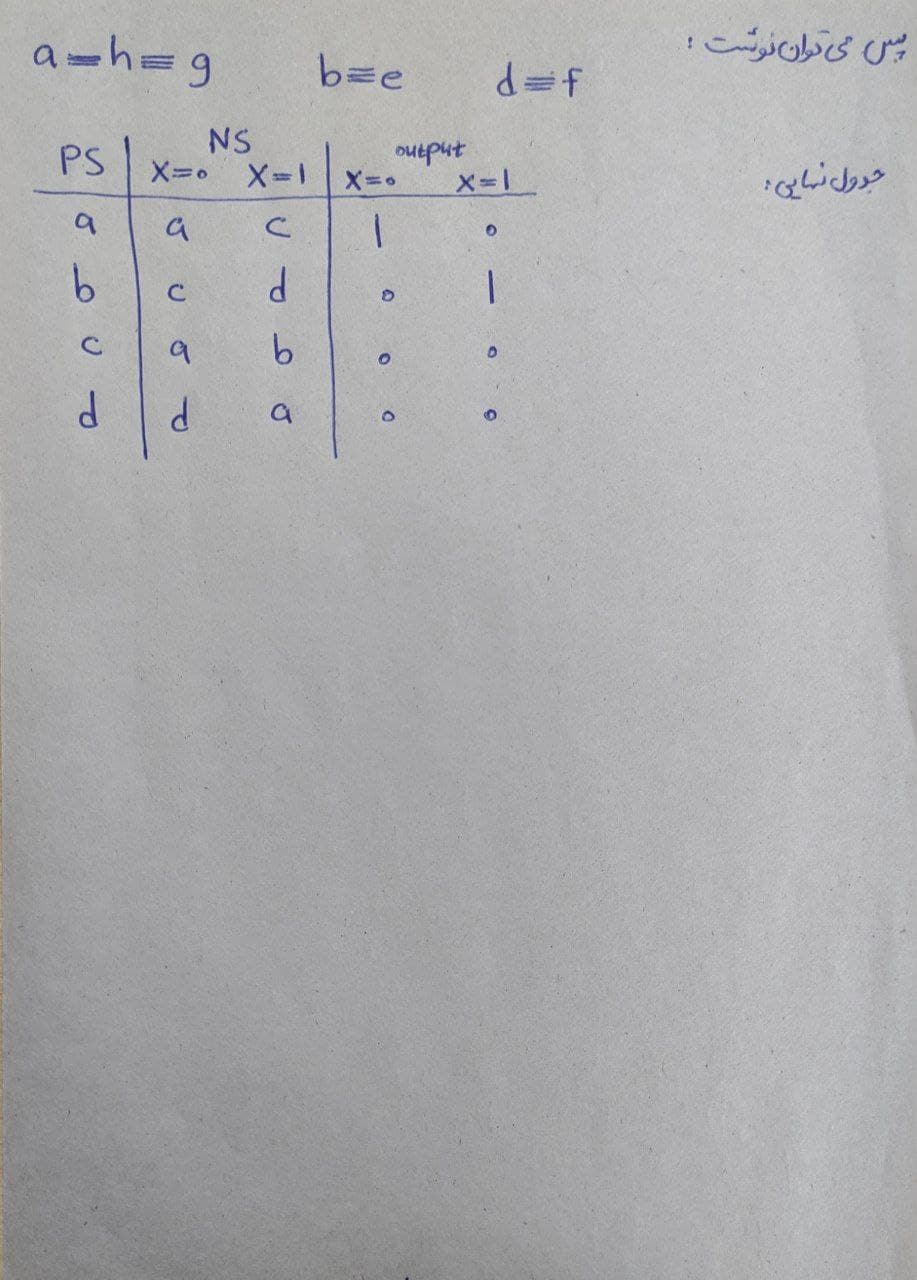 پس می توان نوشت :
a≡h≡g b≡e d≡f
جدول نهایی:
PS NS output
X=0 X=1 X=0 X=1
a a c 1 0
b c d 0 1
c a b 0 0
d d a 0 0